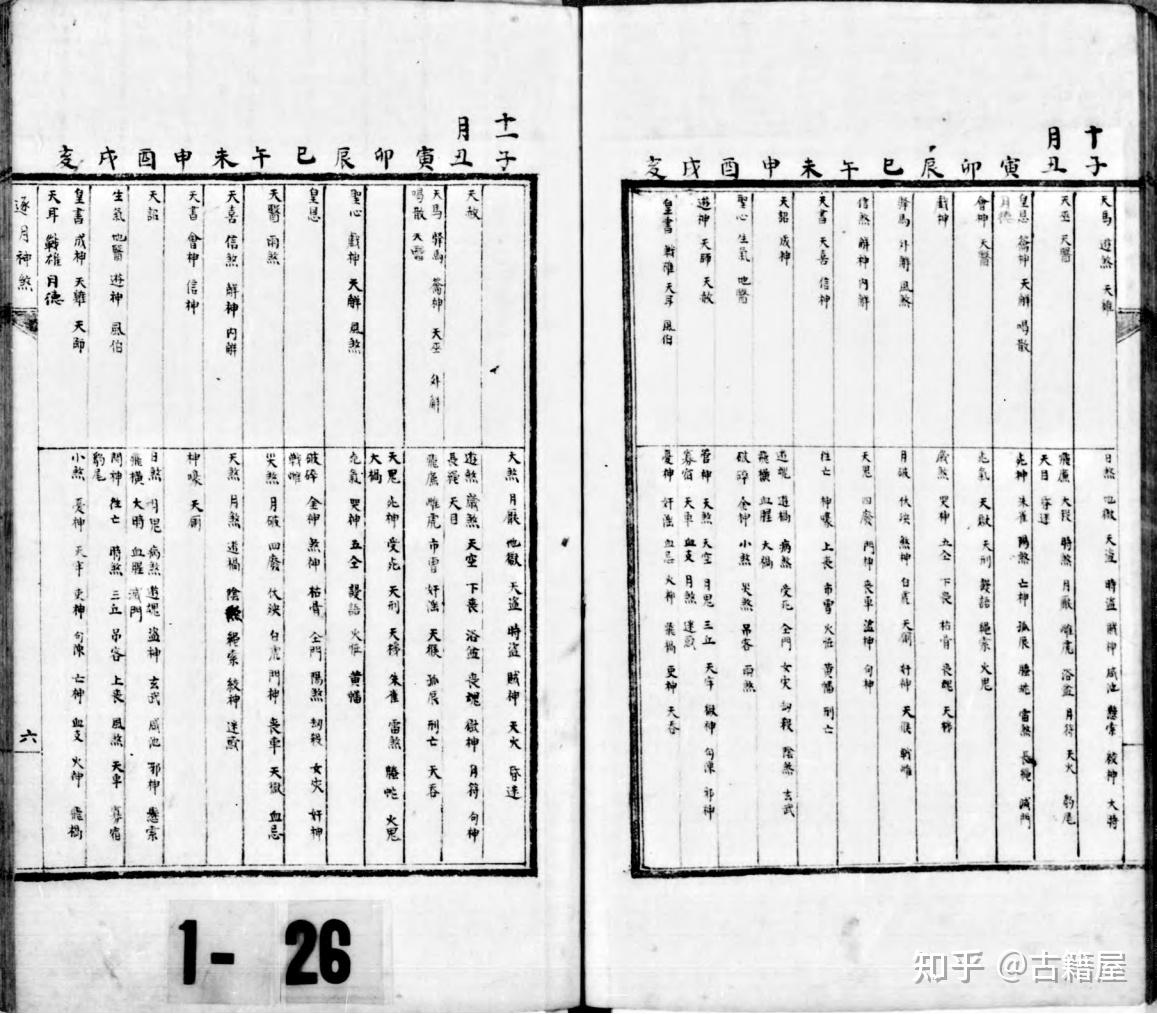 十月
子 丑 寅 卯 辰 巳 午 未 申 酉 戌 亥
天馬 遊煞 天雄
天巫 天醫
皇恩 天解 喝散
月德
會神 天醫
戲神
驛馬 外解 風煞
信煞 解神 內解
天書 天喜 信神
天詔 成神
聖心 生氣 地醫
遊神 天師 天赦
皇書 天耳 風伯
日煞 地獄 天盜 時盜 賊神 咸池 懸索 絞神 大時
飛廉 大煞 時煞 月厭 雌虎 浴盆 月符 天火 豹尾
天目 昏迷
死神 朱雀 陽煞 亡神 孤辰 螣蛇 雷煞 長繩 滅門
死氣 天獄 天刑 謾語 繩索 火鬼
歲煞 哭神 五仝 下喪 枯骨 喪魄
月破 伏殃 煞神 白虎 天廟 奸神 天猴
天鬼 四廢 門神 喪車 盜神 句神
往亡 神嚎 上喪 市曹 火怪 黃幡 刑亡
遊魂 遊禍 病煞 受死 仝門 女災 刧殺 陰煞 玄武
飛橫 血腥 大禍
破碎 金神 小煞 災煞 吊客 雨煞
管神 天煞 天空 月鬼 三丘 天牢 獄神 句陳 邪神
寡宿 天車 血支 月煞 迷惑
憂神 奸淫 血忌 火神 更神 天吞
十一月
子 丑 寅 卯 辰 巳 午 未 申 酉 戌 亥
天赦
天馬 驛馬 天巫 外解
喝散 天醫
聖心 戲神 天解 風煞
皇恩
天醫 雨煞
天喜 信煞 解神 內解
天書 會神 信神
天詔
生氣 地醫 遊神 風伯
皇書 成神 天雄 天師
天耳 月德
大煞 月厭 地獄 天盜 時盜 賊神 天火 昏迷
遊煞 歲煞 天空 下喪 浴盆 喪魄 獄神 月符 句神
長繩 天目
飛廉 雌虎 市曹 奸淫 天猴 孤辰 刑亡 天吞
天鬼 死神 受死 天刑 朱雀 雷煞 螣蛇 火鬼
大禍
死氣 哭神 五仝 謾語 火怪 黃幡
破碎 金神 煞神 枯骨 仝門 陽煞 刧殺 女災 奸神
災煞 月破 四廢 伏殃 白虎 門神 喪車 天獄 血忌
天煞 月煞 遊禍 陰煞 繩索 絞神 迷惑
神嚎 天廟
日煞 月鬼 病煞 遊魂 盜神 玄武 咸池 邪神 懸索
飛橫 大時 血腥 滅門
往亡 時煞 三丘 吊客 上喪 風煞 天車 寡宿
豹尾
小煞 憂神 天牢 更神 句陳 亡神 血支 火神 飛禍
逐月神煞
六
1- 26
知乎 @古籍屋